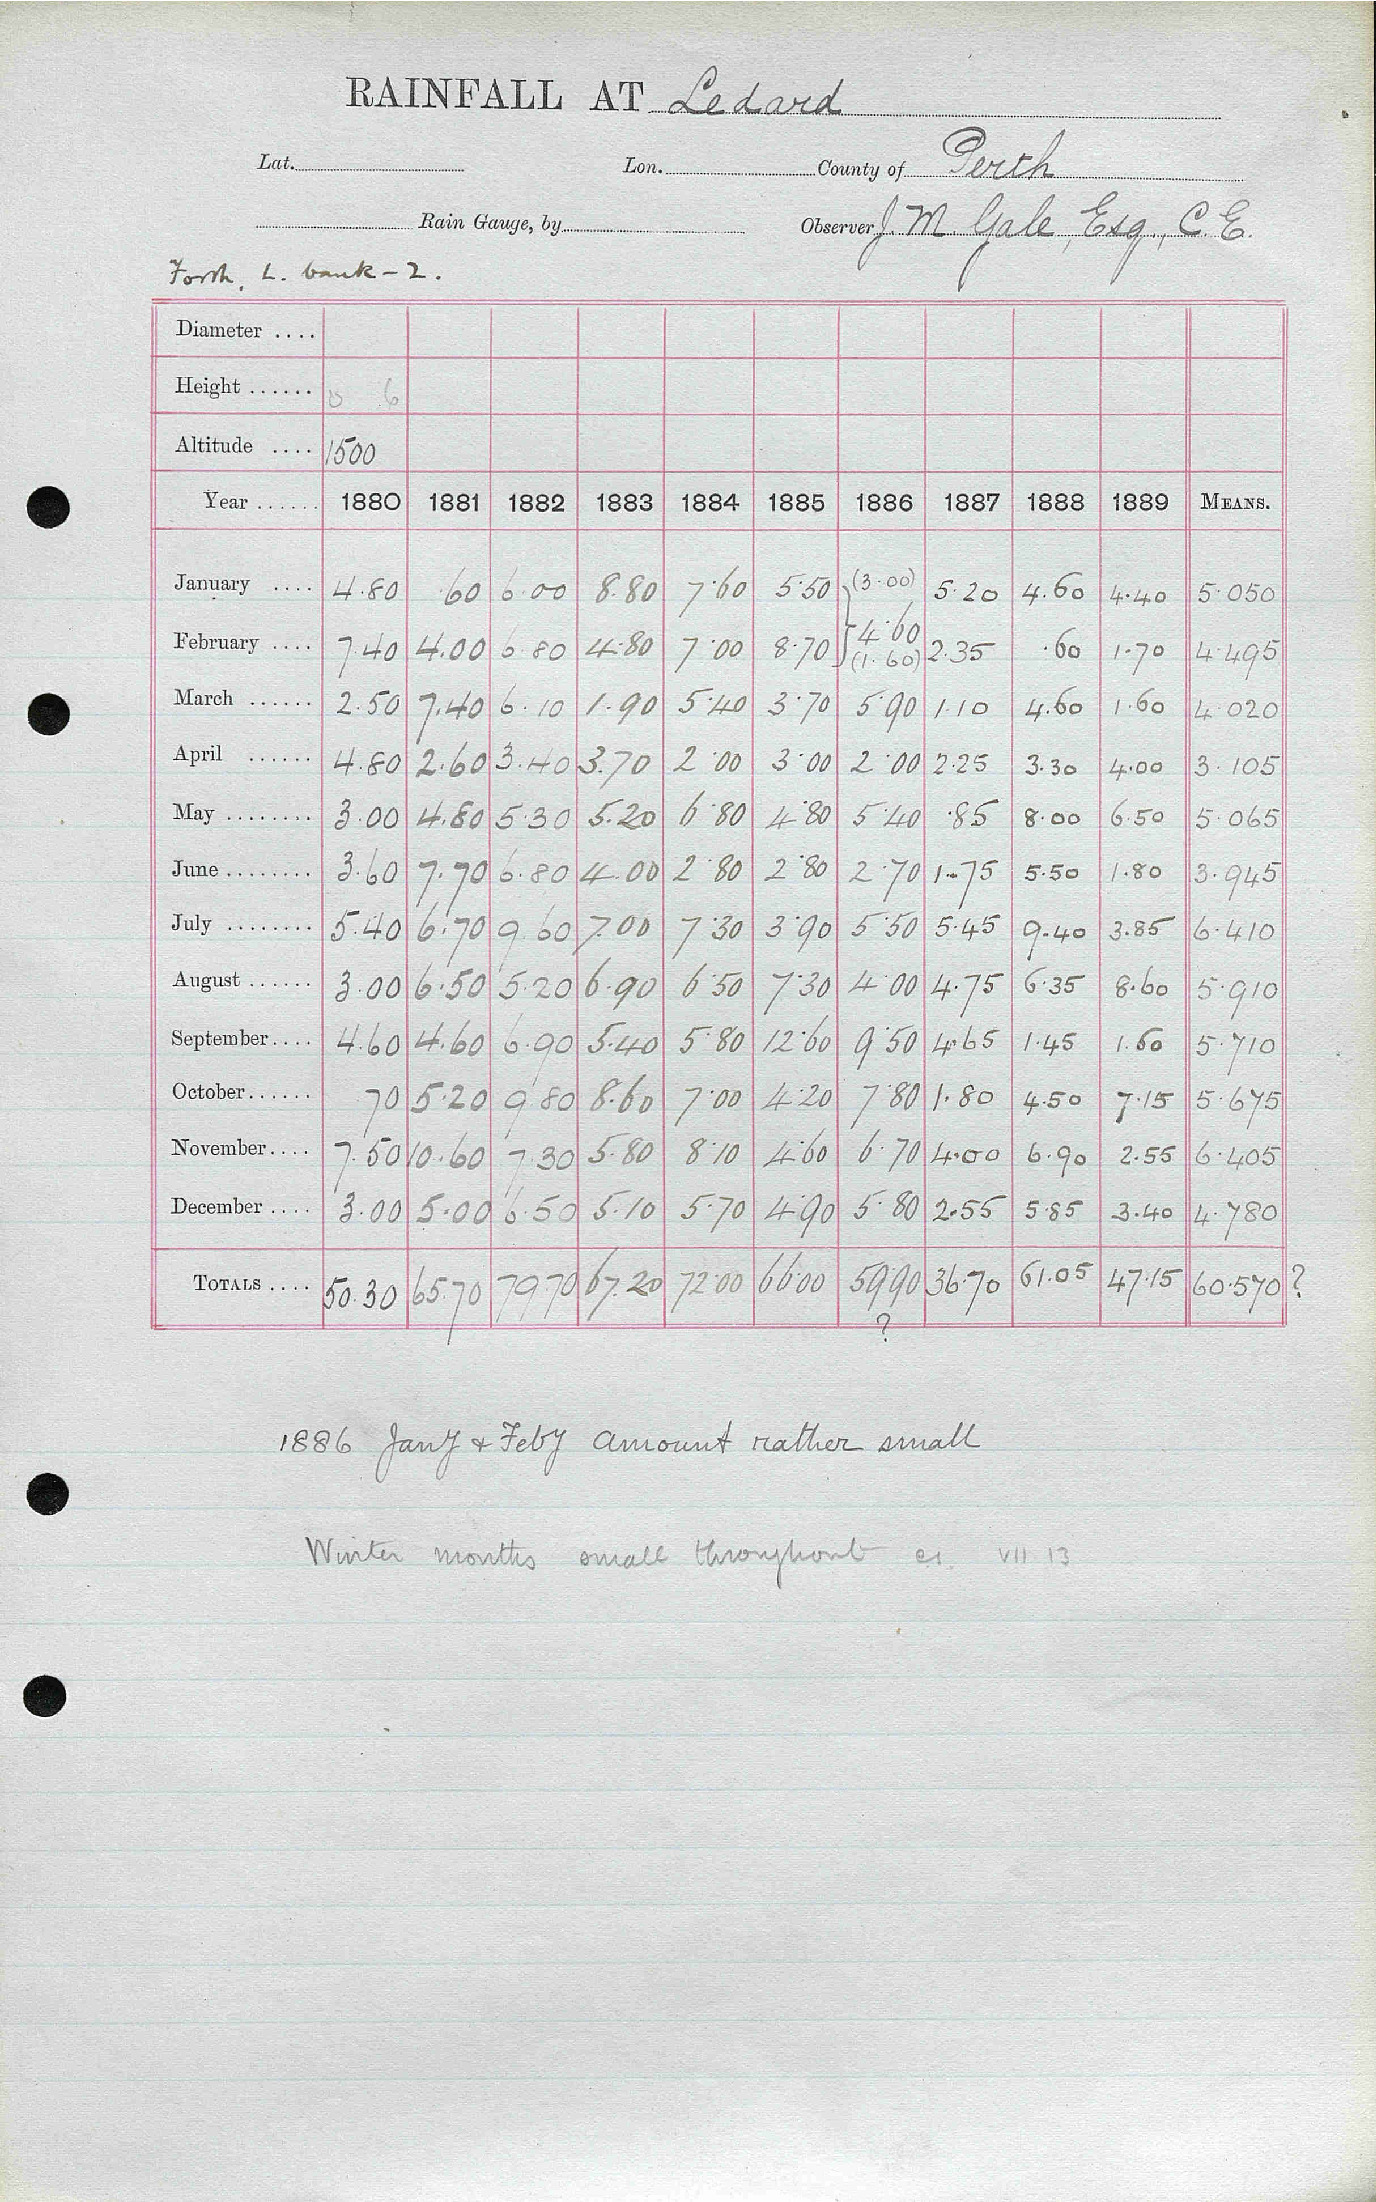 RAINFALL AT Ledard
Lat. Lon. County of Perth
Rain Gauge, by Observer J. M. Gale, Esq., C.E.
Forth, L. bank - 2.
Diameter ....
Height ...... 0 6
Altitude .... 1500
Year ...... 1880 1881 1882 1883 1884 1885 1886 1887 1888 1889 MEANS.
January .... 4.80 .60 6.00 8.80 7.60 5.50 (3.00) 5.20 4.60 4.40 5.050
4.60
February .... 7.40 4.00 6.80 4.80 7.00 8.70 (1.60) 2.35 .60 1.70 4.495
March ...... 2.50 7.40 6.10 1.90 5.40 3.70 5.90 1.10 4.60 1.60 4.020
April ...... 4.80 2.60 3.40 3.70 2.00 3.00 2.00 2.25 3.30 4.00 3.105
May ........ 3.00 4.80 5.30 5.20 6.80 4.80 5.40 .85 8.00 6.50 5.065
June ........ 3.60 7.70 6.80 4.00 2.80 2.80 2.70 1.75 5.50 1.80 3.945
July ........ 5.40 6.70 9.60 7.00 7.30 3.90 5.50 5.45 9.40 3.85 6.410
August ...... 3.00 6.50 5.20 6.90 6.50 7.30 4.00 4.75 6.35 8.60 5.910
September .... 4.60 4.60 6.90 5.40 5.80 12.60 9.50 4.65 1.45 1.60 5.710
October ...... 70 5.20 9.80 8.60 7.00 4.20 7.80 1.80 4.50 7.15 5.675
November .... 7.50 10.60 7.30 5.80 8.10 4.60 6.70 4.00 6.90 2.55 6.405
December .... 3.00 5.00 6.50 5.10 5.70 4.90 5.80 2.55 5.85 3.40 4.780
TOTALS .... 50.30 65.70 79.70 67.20 72.00 66.00 59.90 36.70 61.05 47.15 60.570 ?
?
1886 Jany & Feby amount rather small
Winter months small throughout VII 13